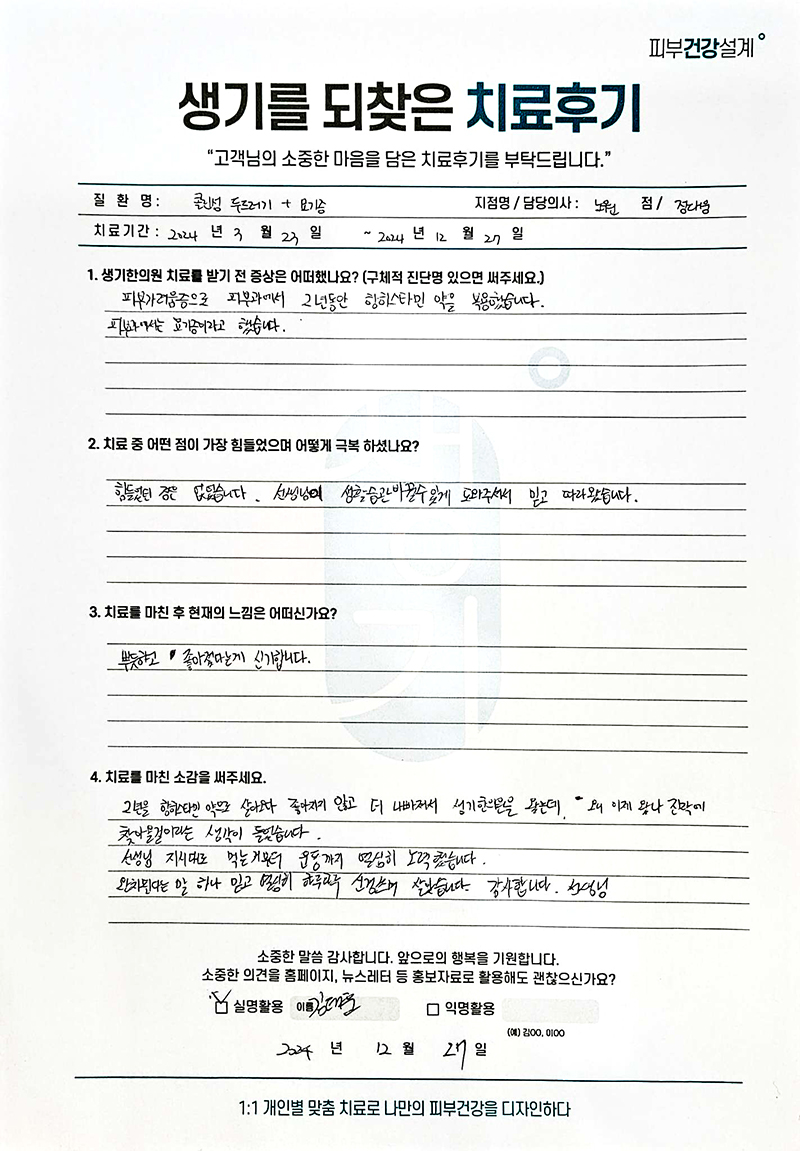 피부건강설계
생기를 되찾은 치료후기
“고객님의 소중한 마음을 담은 치료후기를 부탁드립니다.”
질 환 명 : 콜린성 두드러기 + 모기증 지점명 / 담당의사 : 노원 점 /
치료기간 : 2024 년 3 월 23 일 ~ 2024 년 12 월 27 일
1. 생기한의원 치료를 받기 전 증상은 어떠했나요? (구체적 진단명 있으면 써주세요.)
피부가려움증으로 피부과에서 2년동안 항히스타민 약을 복용했습니다.
피부과에서는 묘기증이라고 했습니다.
2. 치료 중 어떤 점이 가장 힘들었으며 어떻게 극복 하셨나요?
힘들었던 점은 없었습니다. 선생님이 생활습관바꿀수있게 도와주셔서 믿고 따라왔습니다.
3. 치료를 마친 후 현재의 느낌은 어떠신가요?
뿌듯하고 좋아졌다는게 신기합니다.
4. 치료를 마친 소감을 써주세요.
2년을 항히스타민 약으로 살아오다 좋아지지 않고 더 나빠져서 생기한의원을 왔는데, 왜 이제 왔나 진작에
찾아올걸이라는 생각이 들었습니다.
선생님 지시대로 먹는거부터 운동까지 열심히 노력했습니다.
완치된다는 말 하나 믿고 열심히 하루하루 신경쓰며 살았습니다. 감사합니다. 선생님
소중한 말씀 감사합니다. 앞으로의 행복을 기원합니다.
소중한 의견을 홈페이지, 뉴스레터 등 홍보자료로 활용해도 괜찮으신가요?
실명활용 이름 익명활용
(예) 김OO, 이OO
2024 년 12 월 27 일
1:1 개인별 맞춤 치료로 나만의 피부건강을 디자인하다